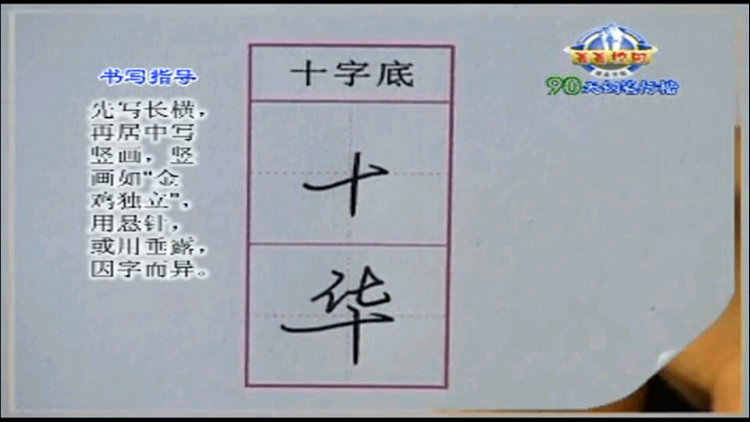 书写指导
先写长横，
再居中写
竖画，竖
画如"金
鸡独立"，
用悬针，
或用垂露，
因字而异。
十字底
十
华
90天钢笔行楷